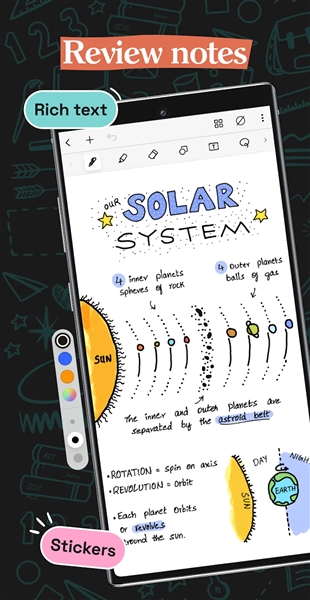 Review notes
Rich text
T
our
SOLAR
SYSTEM
4 inner planets
spheres of rock
4 Outer planets
balls of gas
SUN
The inner and outer planets are
separated by the astroid belt
• ROTATION = Spin on axis
• REVOLUTION = Orbit
• Each planet Orbits
or revolves
around the sun.
DAY
NIGHT
SUN
EARTH
Stickers